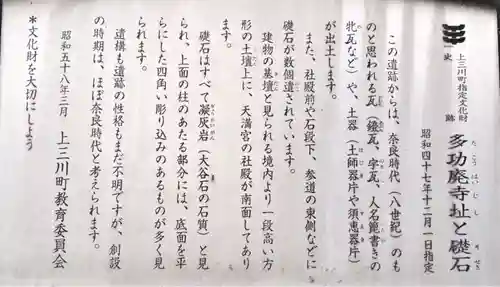 上三川町指定文化財
史跡 多功廃寺址と礎石
たこうはいじし そせき
昭和四十七年十二月一日指定
この遺跡からは、奈良時代（八世紀）のも
のと思われる瓦（鐙瓦、宇瓦、人名箆書きの
牝瓦など）や、土器（土師器片や須恵器片）
が出土します。
また、社殿前や石段下、参道の東側などに
礎石が数個遺されています。
建物の基壇と見られる境内より一段高い方
形の土壇上に、天満宮の社殿が南面してあり
ます。
礎石はすべて凝灰岩（大谷石の石質）と見
られ、上面の柱のあたる部分には、底面を平
らにした四角い彫り込みのあるものが多く見
られます。
遺構も遺跡の性格もまだ不明ですが、創設
の時期は、ほぼ奈良時代と考えられます。
昭和五十八年三月 上三川町教育委員会
＊文化財を大切にしよう